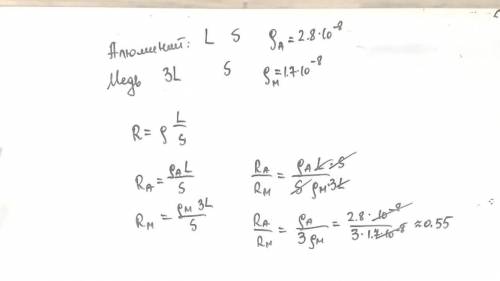 Алюминий: L S ρ_A = 2.8·10^-8
Медь 3L S ρ_M = 1.7·10^-8
R = ρ L/S
R_A = ρ_A L/S R_A/R_M = ρ_A L·S/S ρ_M·3L
R_M = ρ_M 3L/S R_A/R_M = ρ_A/3ρ_M = 2.8·10^-8/3·1.7·10^-8 ≈ 0.55